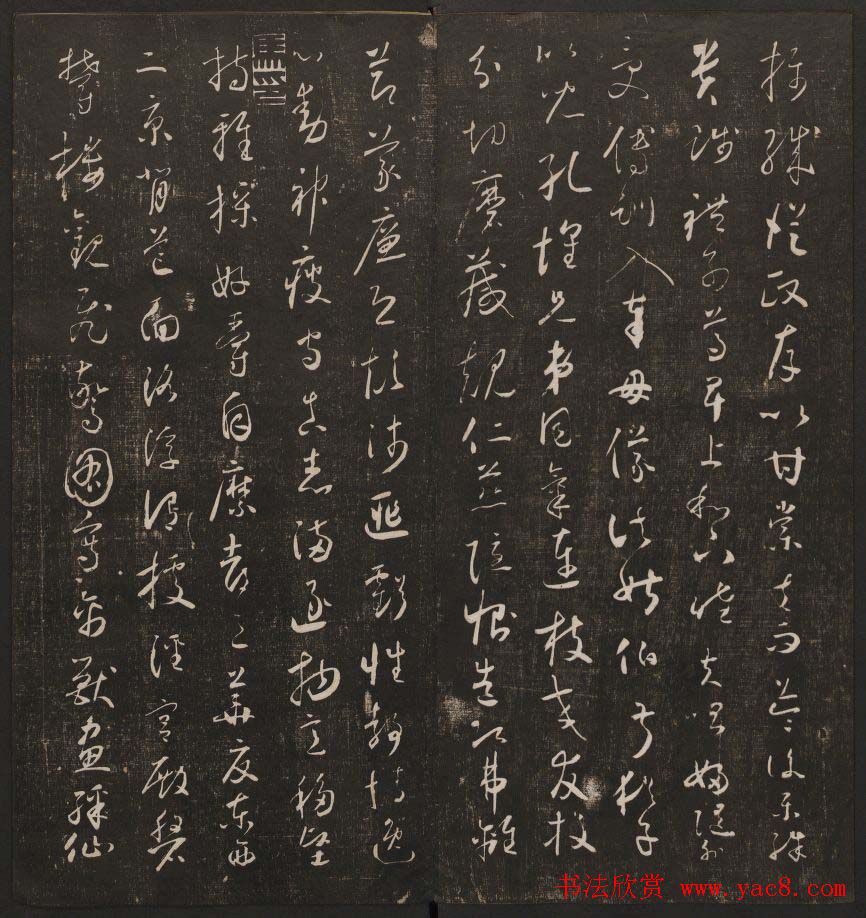 攝職從政存以甘棠去而益詠樂殊
貴賤禮別尊卑上和下睦夫唱婦隨外
受傅訓入奉母儀諸姑伯叔猶子
比兒孔懷兄弟同氣連枝交友投
分切磨箴規仁慈隱惻造次弗離
節義廉退顛沛匪虧性靜情逸
心動神疲守真志滿逐物意移堅
持雅操好爵自縻都邑華夏東西
二京背芒面洛浮渭據涇宮殿磐
鬱樓觀飛驚圖寫禽獸畫綵仙
书法欣赏 www.yac8.com